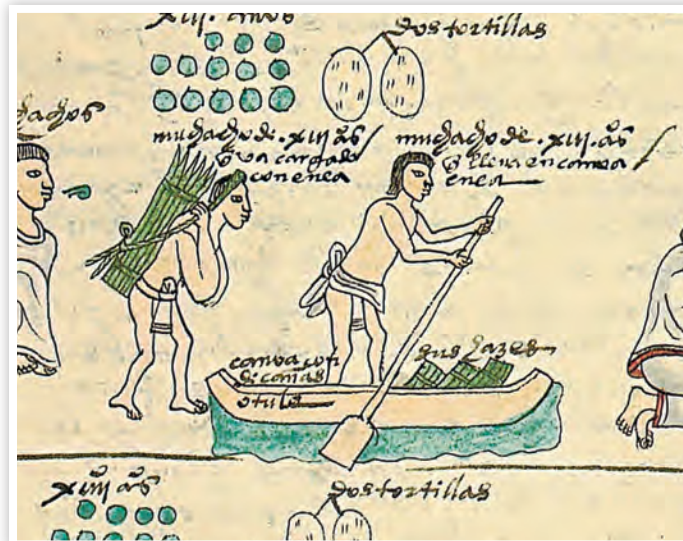 xiii. años
dos tortillas
muchachos
muchacho de . xiij . aºs
q va cargado
con enea
muchacho de . xiij . aºs
q lleva en canoa
enea
canoa con
sus hazes
o tule
xiiij aºs
dos tortillas